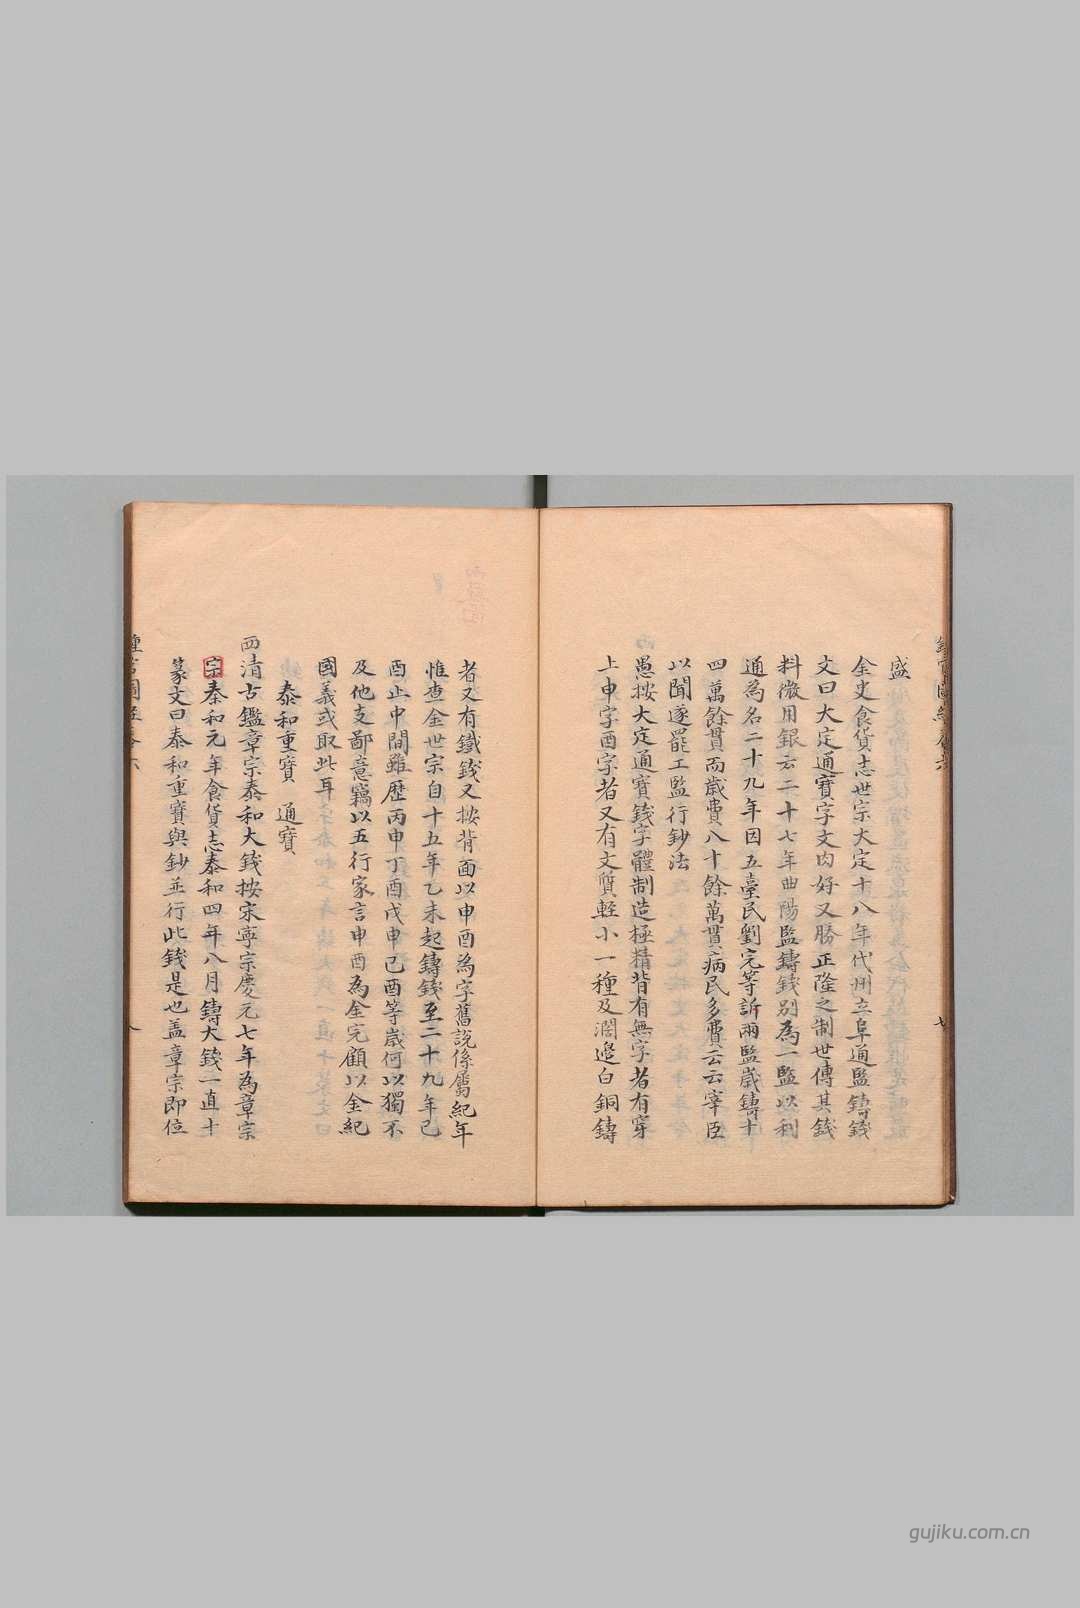 盛
金史食貨志世宗大定十八年代州立阜通監鑄錢
文曰大定通寳字文肉好又勝正隆之制世傳其錢
料微用銀云二十七年曲陽監鑄錢别為一監以利
通為名二十九年因五臺民劉完等訴兩監嵗鑄十
四萬餘貫而嵗費八十餘萬貫病民多費云云宰臣
以聞遂罷工監行鈔法
愚按大定通寳錢字體制造極精背有無字者有穿
上申字酉字者又有文質輕小一種及濶邊白銅鑄
者又有鐵錢又按背面以申酉為字舊說係屬紀年
惟查金世宗自十五年乙未起鑄錢至二十九年己
酉止中間雖歴丙申丁酉戊申己酉等嵗何以獨不
及他支鄙意竊以五行家言申酉為金完顧以金紀
國義或取此耳
泰和重寳　通寳
西清古鑑章宗泰和大錢按宋寧宗慶元七年為章宗
宗泰和元年食貨志泰和四年八月鑄大錢一直十
篆文曰泰和重寳與鈔並行此錢是也盖章宗即位